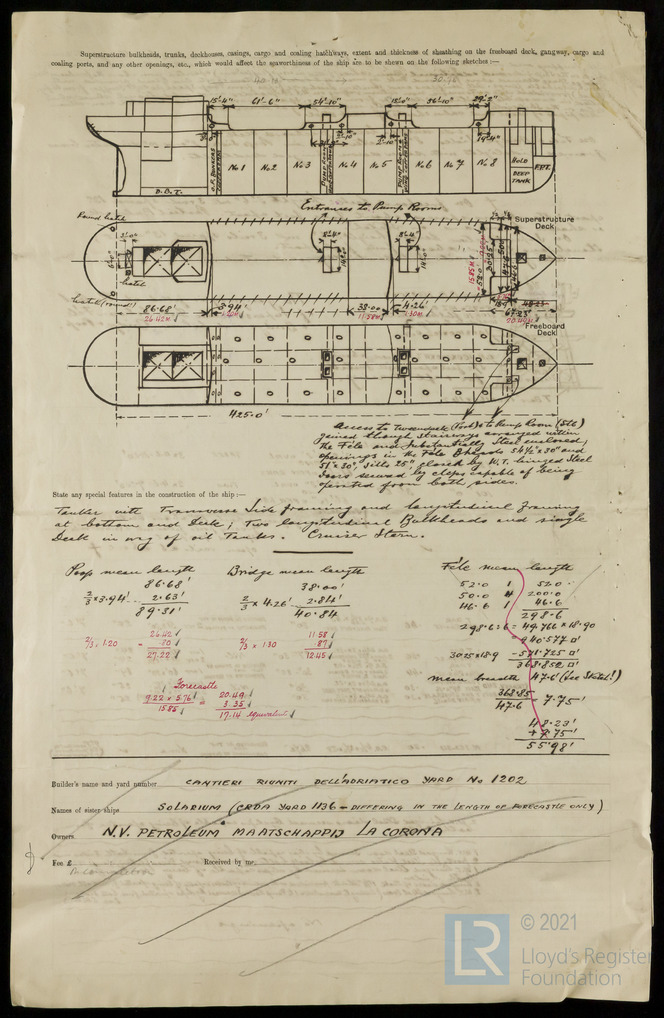 Superstructure bulkheads, trunks, deckhouses, casings, cargo and coaling hatchways, extent and thickness of sheathing on the freeboard deck, gangway, cargo and
coaling ports, and any other openings, etc., which would affect the seaworthiness of the ship are to be shewn on the following sketches :—
15'-4" 61'-6" 54'-10" 15'0" 36'-10" 29'-2"
No 1 No 2 No 3 No 4 No 5 No 6 No 7 No 8 HOLD DEEP TANK F.P.T.
D.B.T.
Entrances to Pump Rooms
Round hatch
Superstructure
Deck
86.68' 3.94' 38.00' 4.26' 48.23'
26.42M 1.20M 11.58M 1.30M 67.23'
20.49M
Freeboard
Deck
425.0'
Access to Tweendeck (Fore) & to Pump Room (Stb)
gained though stairways arranged within
the F'cle and substantially steel enclosed,
openings in the F'cle Bheads 54½" x 30" and
51" x 30", sills 25" closed by W.T. hinged steel
doors secured by clips capable of being
operated from both sides.
State any special features in the construction of the ship :—
Tanker with Transverse Side framing and longitudinal framing
at bottom and Deck; Two longitudinal Bulkheads and single
Deck in way of oil Tanks. Cruiser Stern.
Poop mean length Bridge mean length F'cle mean length
86.68' 38.00' 52.0 1 52.0
2/3 x 3.94' 2.63' 2/3 x 4.26' 2.84' 50.0 4 200.0
89.31' 40.84 46.6 1 46.6
298.6
298.6 ÷ 6 = 49.766 x 18.90
26.42 11.58 940.577 □'
2/3 x 1.20 = .80 2/3 x 1.30 .87 30.25 x 18.9 - 571.725 □'
27.22 12.45 368.852 □'
mean breadth 47.6' (See Sketch!)
Forecastle
9.22 x 5.76 = 20.49 368.85 = 7.75'
15.85 3.35 47.6
17.14 equivalent 48.23'
+ 7.75'
55.98'
Builder's name and yard number CANTIERI RIUNITI DELL'ADRIATICO YARD No 1202
Names of sister ships SOLARIUM (CRDA YARD 1136 - DIFFERING IN THE LENGTH OF FORECASTLE ONLY)
Owners N.V. PETROLEUM MAATSCHAPPIJ LA CORONA
Fee £ Received by me,
LR © 2021
Lloyd's Register
Foundation